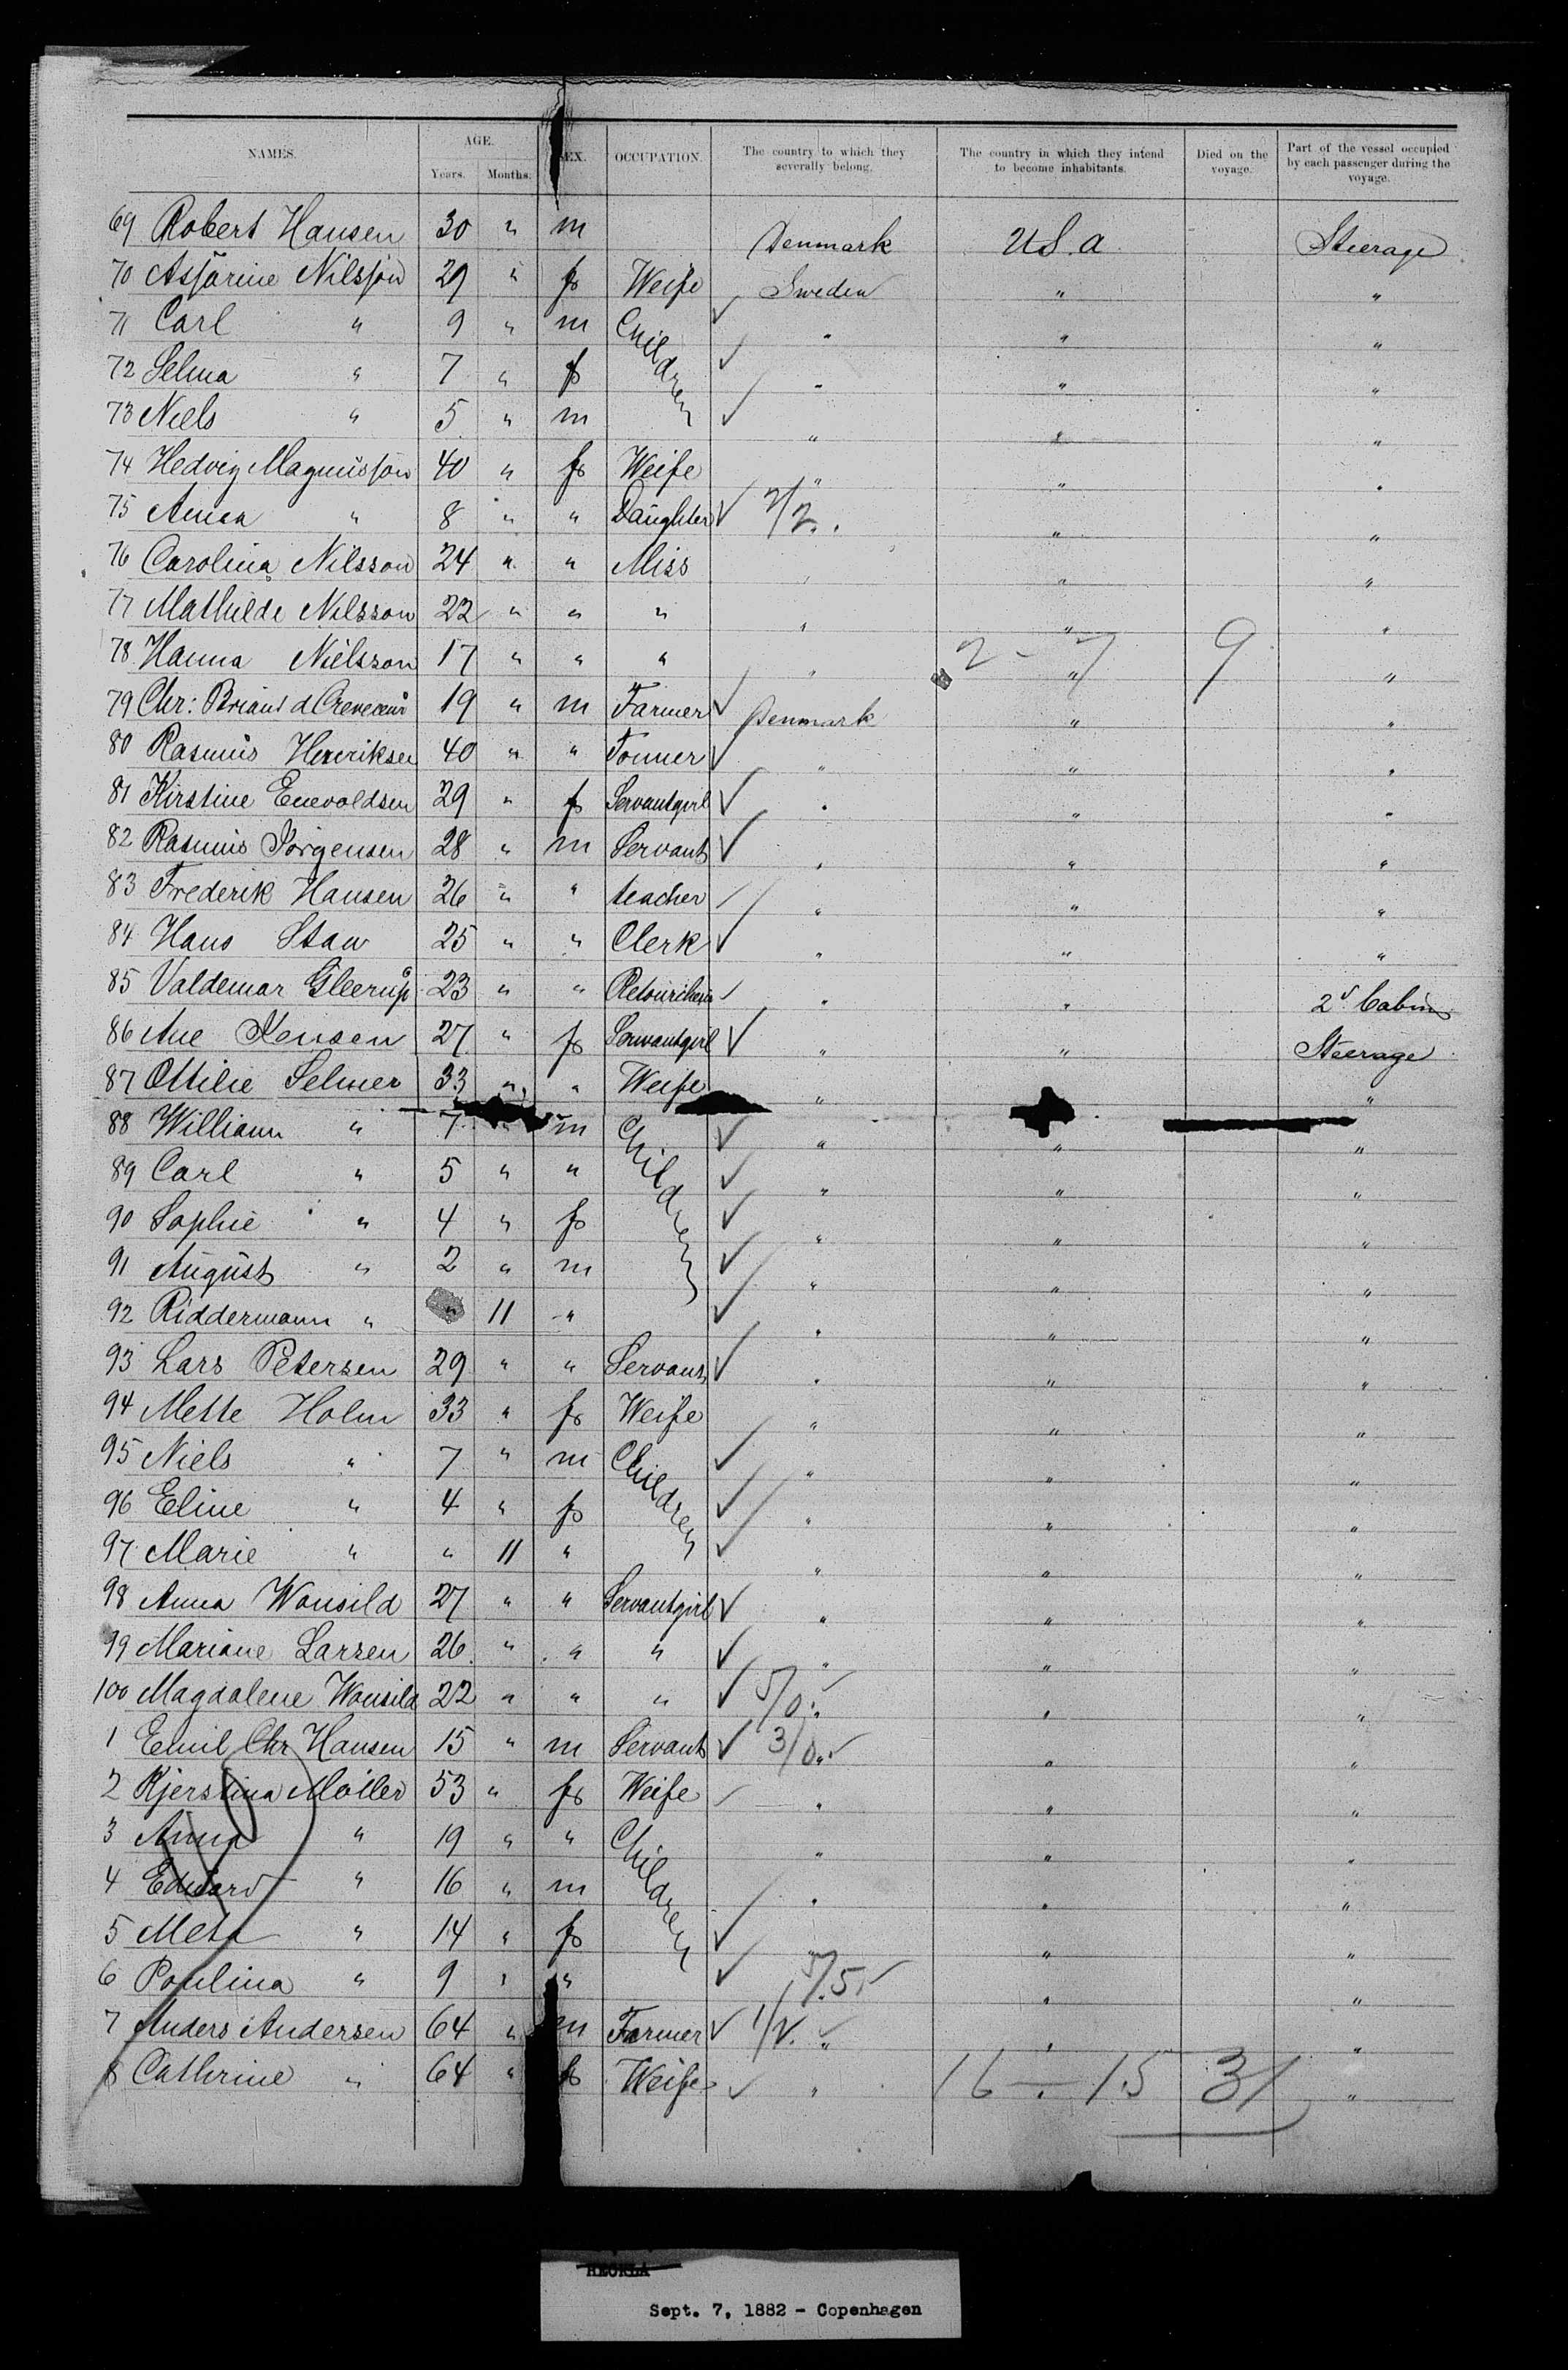 NAMES. AGE. Years. Months. SEX. OCCUPATION. The country to which they severally belong. The country in which they intend to become inhabitants. Died on the voyage. Part of the vessel occupied by each passenger during the voyage.
69 Robert Hansen 30 " m Denmark U.S.a Steerage
70 Assarine Nilsson 29 " f Weife Sweden " "
71 Carl " 9 " m Children " " "
72 Selma " 7 " f " " "
73 Niels " 5 " m " " "
74 Hedvig Magnusson 40 " f Weife " " "
75 Anna " 8 " " Daughter 2/2 " "
76 Carolina Nilsson 24 " " Miss " " "
77 Mathilde Nilsson 22 " " " " " "
78 Hanna Nielsson 17 " " " " 2 - 7 " 9 "
79 Chr: Briand d Crevecoeur 19 " m Farmer Denmark " "
80 Rasmus Henriksen 40 " " " " "
81 Kirstine Enevoldsen 29 " f Servantgirl " " "
82 Rasmus Jörgensen 28 " m Servant " " "
83 Frederik Hansen 26 " " teacher " " "
84 Hans Staw 25 " " Clerk " " "
85 Valdemar Gleerup 23 " " " " 2d Cabin
86 Ane Jensen 27 " f Servantgirl " " Steerage
87 Ottilie Selmer 33 " " Weife " " "
88 William " 7 m Children " " "
89 Carl " 5 " " " " "
90 Sophie " 4 " f " " "
91 August " 2 " m " " "
92 Riddermann " " 11 " " " "
93 Lars Petersen 29 " " Servant " " "
94 Mette Holm 33 " f Weife " " "
95 Niels " 7 " m Children " " "
96 Eline " 4 " f " " "
97 Marie " " 11 " " " "
98 Anna Wonsild 27 " " Servantgirl " " "
99 Mariane Larsen 26 " " " " " "
100 Magdalene Wonsild 22 " " " 5/0 " " "
1 Emil Chr Hansen 15 " m Servant 3/0 " " "
2 Kjerstina Möller 53 " f Weife " " "
3 Anna " 19 " " Children " " "
4 Edward " 16 " m " " "
5 Meta " 14 " f " " "
6 Poulina " 9 " " 5/5 " "
7 Anders Andersen 64 " m Farmer " " "
8 Cathrine " 64 " f Weife " 16 - 15 31 "
HECKLA
Sept. 7, 1882 - Copenhagen